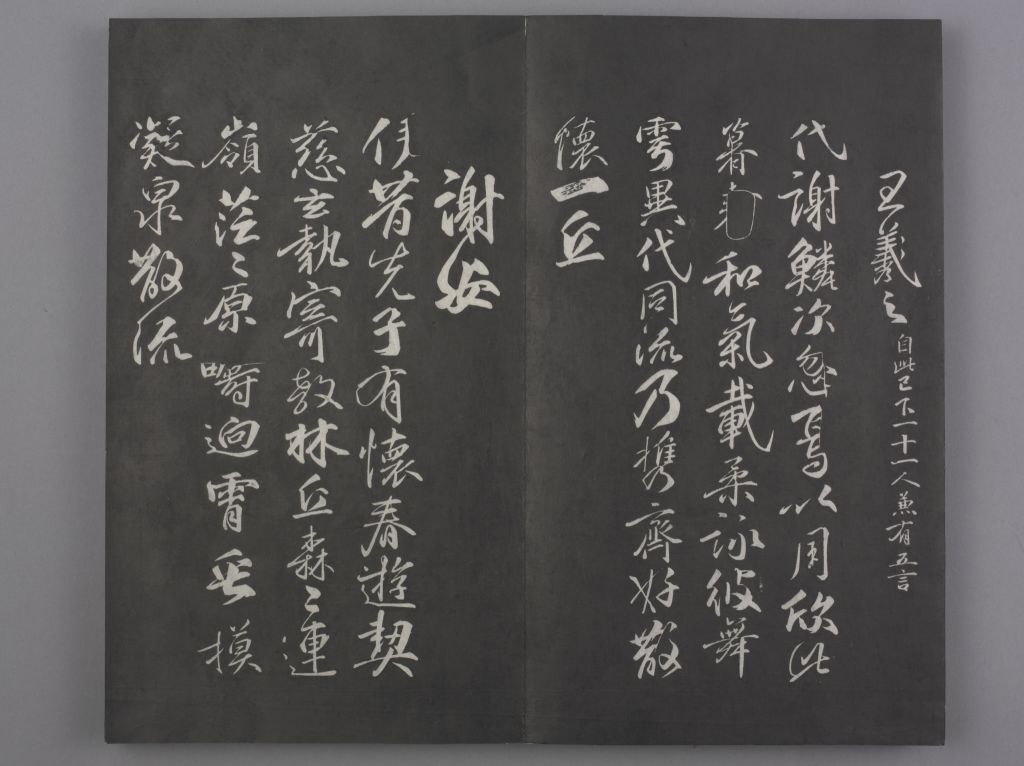 王羲之 自此已下一十一人兼有五言
代謝鱗次忽焉以周欣此
暮春和氣載柔詠彼舞
雩異代同流乃携齊好散
懷一丘
謝安
伊昔先子有懷春遊契
慈言執寄敖林丘森〻連
嶺茫〻原疇迥霄垂
凝泉散流